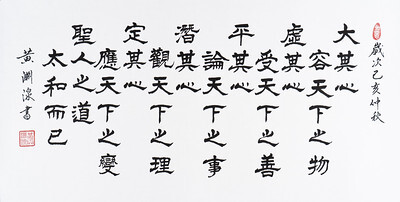 歲次乙亥仲秋
大其心
容天下之物
虛其心
受天下之善
平其心
論天下之事
潛其心
觀天下之理
定其心
應天下之變
聖人之道
太和而已
黃淵濠書